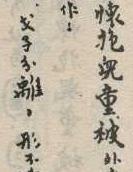 懷抱兒童被外
作：
戈子分離：形不